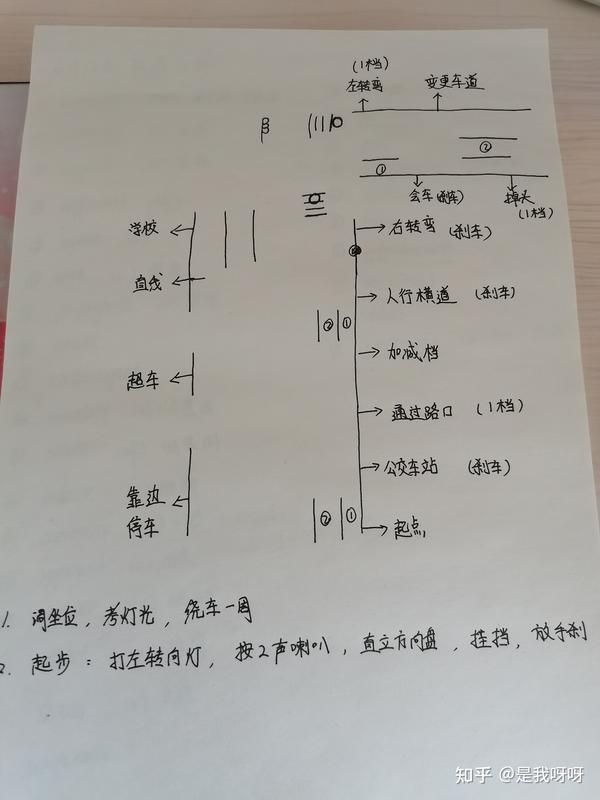 (1档)
左转弯 变更车道
① ②
会车(刹车) 掉头
(1档)
学校 右转弯 (刹车)
直线 人行横道 (刹车)
② ①
加减档
超车
通过路口 (1档)
公交车站 (刹车)
靠边
停车
② ① 起点
1. 调坐位,考灯光,绕车一周
2. 起步:打左转向灯,按2声喇叭,直立方向盘,挂挡,放手刹
知乎 @是我呀呀